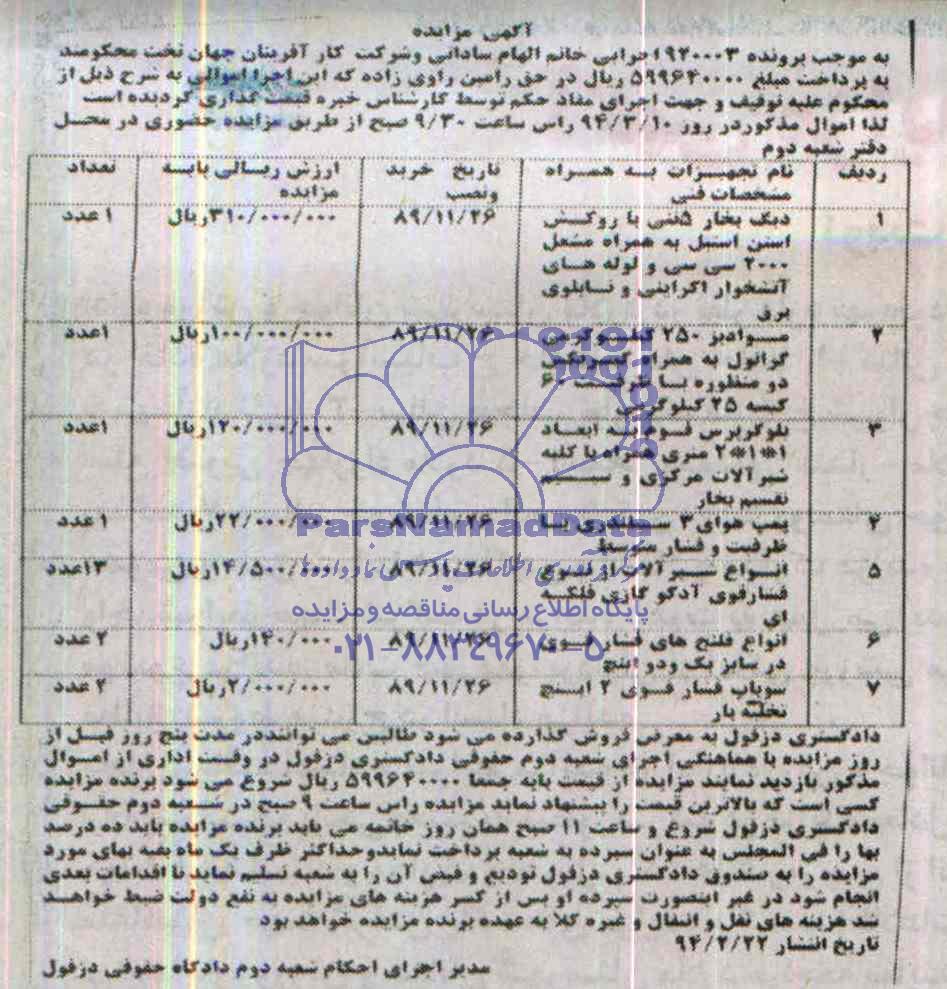 آگهی مزایده
به موجب پرونده ۹۲۰۰۰۳ اجرایی خانم الهام ساداتی وشرکت کار آفرینان جهان تخت محکومند
به پرداخت مبلغ ۵۹۹۶۴۰۰۰۰ ریال در حق رامین راوی زاده که این اجرا اموالی به شرح ذیل از
محکوم علیه توقیف و جهت اجرای مفاد حکم توسط کارشناس خبره قیمت گذاری گردیده است
لذا اموال مذکوردر روز ۹۴/۳/۱۰ راس ساعت ۹/۳۰ صبح از طریق مزایده حضوری در محل
دفتر شعبه دوم
ردیف نام تجهیزات به همراه تاریخ خرید ارزش ریالی پایه تعداد
مشخصات فنی ونصب مزایده
۱ دیگ بخار ۵تنی با روکش ۸۹/۱۱/۲۶ ۳۱۰/۰۰۰/۰۰۰ریال ۱عدد
استن استیل به همراه مشعل
۲۰۰۰ سی سی و لوله های
آتشخوار اکراینی و تابلوی
برق
۲ سوادیز ۲۵۰ کیلوگرمی ۸۹/۱۱/۲۶ ۱۰۰/۰۰۰/۰۰۰ریال ۱عدد
گرانول به همراه
دو منظوره با ظرفیت ۶۰
کیسه ۲۵ کیلوگرمی
۳ بلوکرپرس فوم به ابعاد ۸۹/۱۱/۲۶ ۱۲۰/۰۰۰/۰۰۰ریال ۱عدد
۱*۱*۲ متری همراه با کلیه
شیرآلات مرکزی و سیستم
تقسیم بخار
۴ پمپ هوای ۳ سیلندری با ۸۹/۱۱/۲۶ ۲۲/۰۰۰/۰۰۰ریال ۱عدد
ظرفیت و فشار متوسط
۵ انواع شیر آلات از نوع ۸۹/۱۱/۲۶ ۱۴/۵۰۰/۰۰۰ریال ۱۳عدد
فشارقوی آدکو گازی فلکه
ای
۶ انواع فلنج های فشار قوی ۸۹/۱۱/۲۶ ۱۴۰/۰۰۰ریال ۲عدد
در سایز یک ودو اینچ
۷ سوپاپ فشار قوی ۲ اینچ ۸۹/۱۱/۲۶ ۲/۰۰۰/۰۰۰ریال ۲عدد
تخلیه بار
ParsNamadData
پایگاه اطلاع رسانی مناقصه و مزایده
۰۲۱-۸۸۳۴۹۶۷۰-۵
دادگستری دزفول به معرض فروش گذارده می شود طالبین می تواننددر مدت پنج روز قبل از
روز مزایده با هماهنگی اجرای شعبه دوم حقوقی دادگستری دزفول در وقت اداری از اموال
مذکور بازدید نمایند مزایده از قیمت پایه جمعا ۵۹۹۶۴۰۰۰۰ ریال شروع می شود برنده مزایده
کسی است که بالاترین قیمت را پیشنهاد نماید مزایده راس ساعت ۹ صبح در شعبه دوم حقوقی
دادگستری دزفول شروع و ساعت ۱۱ صبح همان روز خاتمه می یابد برنده مزایده باید ده درصد
بها را فی المجلس به عنوان سپرده به شعبه پرداخت نمایدوحداکثر ظرف یک ماه بقیه بهای مورد
مزایده را به صندوق دادگستری دزفول تودیع و قبض آن را به شعبه تسلیم نماید تا اقدامات بعدی
انجام شود در غیر اینصورت سپرده او پس از کسر هزینه های مزایده به نفع دولت ضبط خواهد
شد هزینه های نقل و انتقال و غیره کلا به عهده برنده مزایده خواهد بود
تاریخ انتشار ۹۴/۲/۲۲
مدیر اجرای احکام شعبه دوم دادگاه حقوقی دزفول